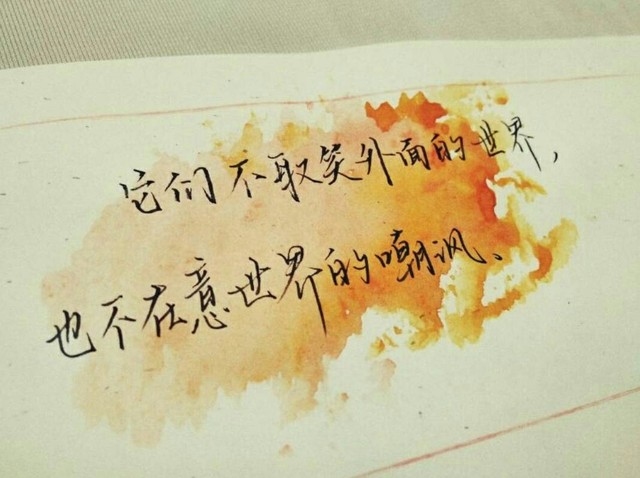 它们不取笑外面的世界，
也不在意世界的嘲讽、